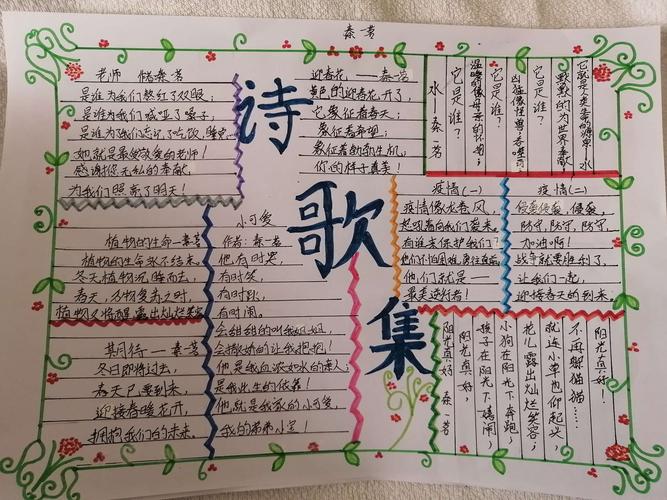 秦芳
诗歌集
老师 储秦芳
是谁为我们熬红了双眼；
是谁为我们喊哑了嗓子；
是谁为我们忘记了吃饭、睡觉
她就是最受敬爱的老师！
感谢你无私的奉献，
为我们照亮了明天！
迎春花，——秦芳
黄色的迎春花开了，
它象征着春天；
象征着希望；
象征着勃勃生机，
你的样子真美！
水—秦芳
它是谁？
温暖的像母亲的怀抱；
它是谁？
凶猛像怪兽；
它是谁？
默默的为世界奉献；
它就是人类生命的源泉：水
植物的生命—秦芳
植物的生命永不结束。
冬天植物沉睡而去，
春天，万物复苏之时，
植物又将醒露出灿烂笑容
期待—秦芳
冬日即将过去，
春天已要到来，
迎接春暖花开，
拥抱我们的未来。
小可爱
作者：秦芳
他，有时哭，
有时笑，
有时趴，
有时闹。
会甜甜的叫我姐姐，
会撒娇的让我抱抱！
他是我血浓如水的亲人；
是我此生的依靠！
他就是我家的小可爱，
我的弟弟小宝！
疫情（一）
疫情像龙卷风，
起吼着向我们袭来。
有谁来保护我们？
他们不怕困难，勇往直前
他们就是——
最美逆行者！
疫情（二）
侵袭侵袭，侵袭，
防守，防守，防守，
加油哪！
战争就要胜利了，
让我们一起，
迎接春天的到来。
阳光真好 秦芳
阳光真好，
孩子在阳光下嬉闹
小狗在阳光下奔跑；
花儿露出灿烂笑容；
就连小草也仰起头，
不再躲猫猫……
阳光真好！